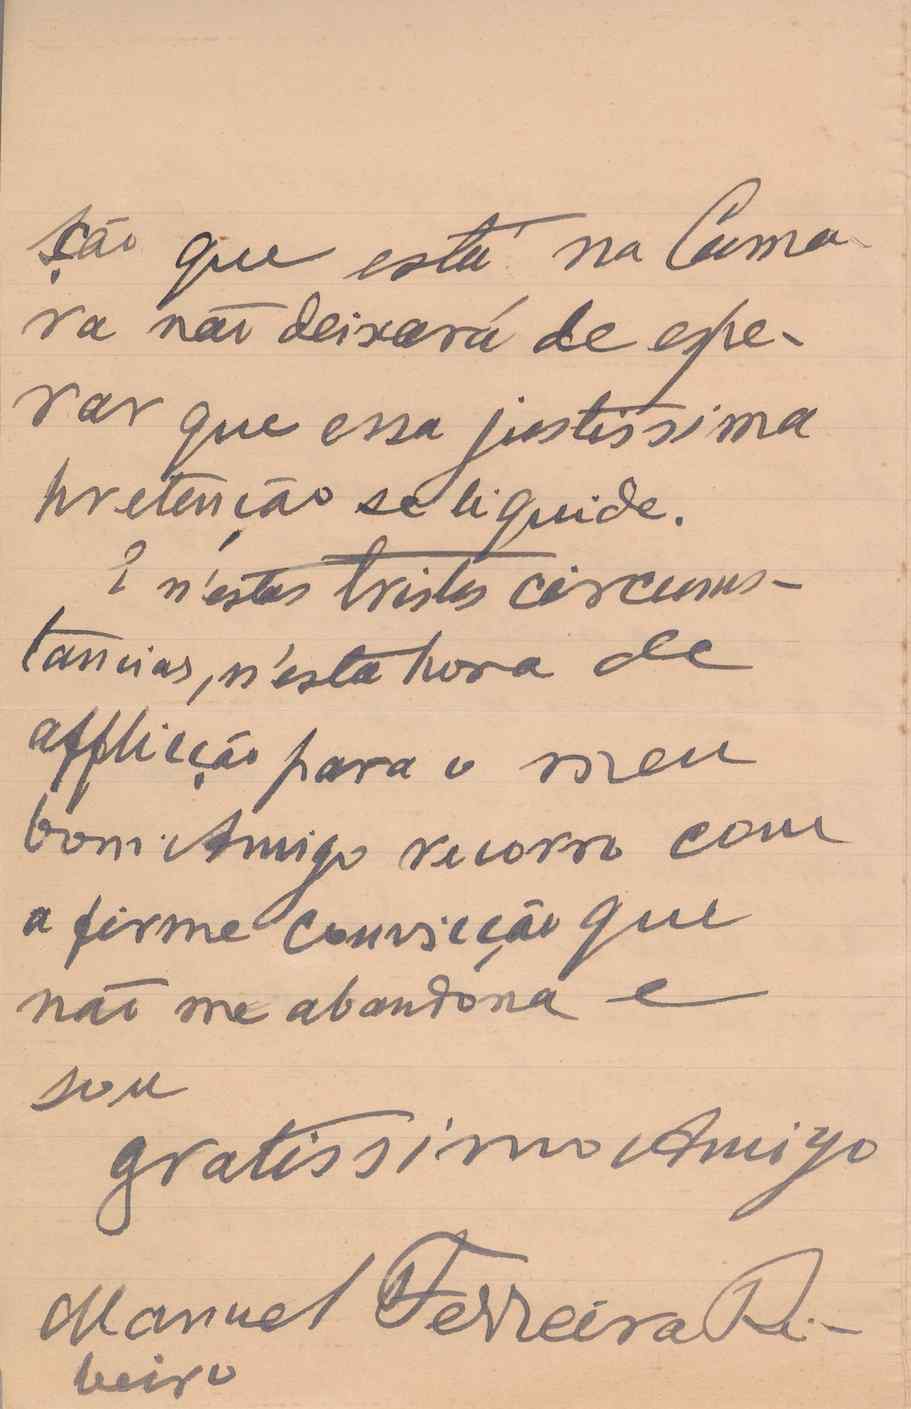 ção que está na Cama-
ra não deixará de espe-
rar que essa justissima
pretenção se liquide.
E n'estas tristes circums-
tancias, n'esta hora de
afflicção para o meu
bom Amigo recorro com
a firme convicção que
não me abandona e
sou
gratissimo Amigo
Manuel Ferreira Ri-
beiro